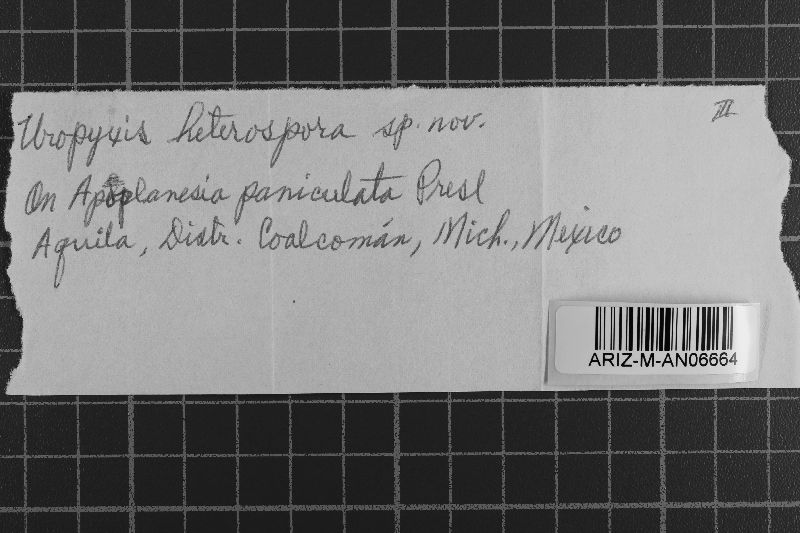 Uropyxis heterospora sp. nov. III
On Apoplanesia paniculata Presl
Aquila, Distr. Coalcomán, Mich., Mexico
ARIZ-M-AN06664